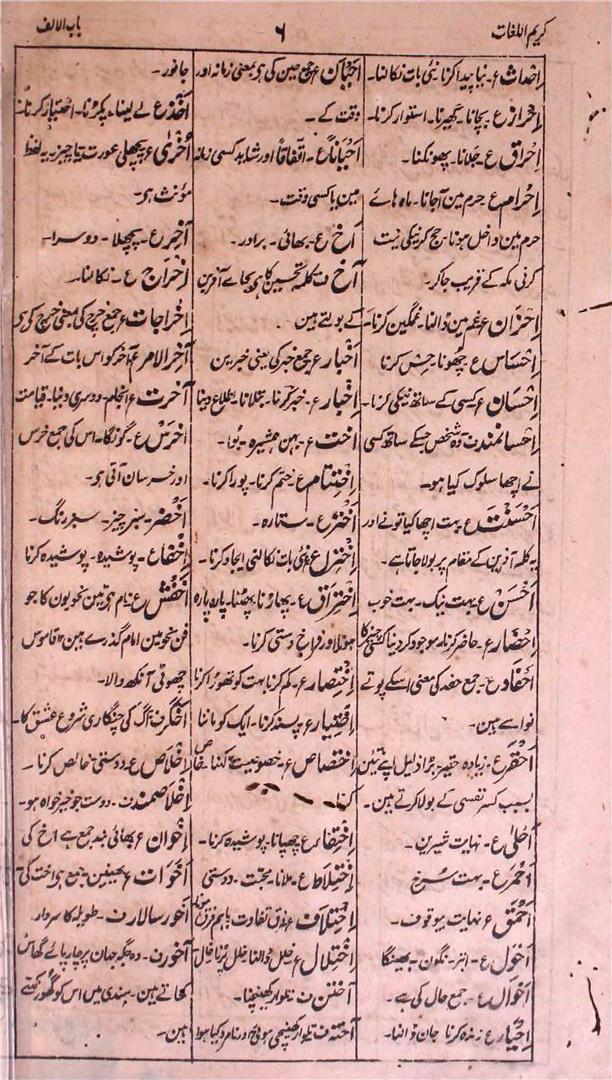 کریم اللغات
۶
باب الالف
اِحداث ع۔ نیا پیدا کرنا نئی بات نکالنا۔
اِحراز ع۔ بچانا۔ گھیرنا۔ استوار کرنا۔
اِحراق ع۔ جلانا۔ پھونکنا۔
اِحرام ع حرم مین آجانا۔ ماہ ہائے
حرم مین داخل ہونا۔ حج کرنیکی نیت
کرنی مکہ کے قریب جاکر۔
اِحزان ع غم مین ڈالنا۔ غمگین کرنا۔
اِحساس ع۔ چھونا۔ حِس کرنا
اِحسان ع کسی کے ساتھ نیکی کرنا۔
احسانمند ف وہ شخص جسکے ساتھ کسی
نے اچھا سلوک کیا ہو۔
اَحسَنتَ ع بہت اچھا کیا تونے اور
یہ کلمہ آفرین کے مقام پر بولا جاتا ہے۔
اَحسَن ع بہت نیک۔ بہت خوب
اِحضار ع۔ حاضر کرنا۔ موجود کردینا
اَحفاد ع۔ جمع حفد کی معنی اسکے پوتے
نواسے ہین۔
اَحقَر ع۔ زیادہ حقیر۔ بڑا ذلیل اپنے تئین
بسبب کسر نفسی کے بولا کرتے ہین۔
اَحلیٰ ع۔ نہایت شیرین۔
اَحمَر ع۔ بہت سُرخ
اَحمَق ع نہایت بیوقوف۔
اَحوَل ع۔ بھینگا
اَحوَال ع۔ جمع حال کی ہے۔
اِحیَار ع۔ زندہ کرنا جان ڈالنا۔
اَحیَان ع جمع حین کی ہے بمعنی زمانہ اور
وقت کے۔
اَحیَاناً ع۔ اتفاقاً اور شاید کسی زمانہ
مین یا کسی وقت۔
اَخ ع۔ بھائی۔ برادر۔
آخ ف کلمہ تحسین کا ہے بجائے آفرین
کے بولتے ہین۔
اَخبار ع جمع خبر کی یعنی خبرین
اِخبار ع۔ خبر کرنا۔ بتلانا۔ اطلاع دینا
اُخت ع۔ بہن ہمشیرہ۔ بوا۔
اِختِتام ع ختم کرنا۔ پورا کرنا۔
اَختَر ع۔ ستارہ۔
اِختراع ع نئی بات نکالنی ایجاد کرنا۔
اِختِراق ع۔ پھاڑنا پھٹنا۔ پارہ پارہ
ہونا اور فراخ دستی کرنا۔
اِختِصار ع۔ کم کرنا بہت کو تھوڑا کرنا
اِختِیار ع۔ پسند کرنا۔ ایک کو ماننا
اختصاص ع۔ خصوصیت رکھنا۔ خاص
کرنا۔
اِختِفاء ع چھپانا۔ پوشیدہ کرنا۔
اِختِلاط ع۔ ملانا۔ محبت۔ دوستی
اِختِلاف ع فرق تفاوت باہم فرق
اِختِلال ع خلل ڈالنا خلل پڑنا
آختن ف تلوار کھینچنا۔
آختہ ف تلوار کھینچی ہوئی اور نامرد کیا ہوا
جانور۔
اَخذ ع لے لینا۔ پکڑنا۔ اختیار کرنا۔
اُخریٰ ع پچھلی عورت یا چیز۔ یہ لفظ
مؤنث ہے۔
آخِر ع۔ پچھلا۔ دوسرا۔
اِخراج ع۔ نکالنا۔
اِخراجات ع جمع خرچ کی معنی خرچ کی ہے
آخرالامر ع آخر کو اس بات کے آخر
آخِرت ع انجام۔ دوسری دنیا۔ قیامت
اَخرَس ع۔ گونگا۔ اس کی جمع خرس
اور خرسان آتی ہے۔
اَخضَر۔ سبز چیز۔ سبز رنگ۔
اِخفاع۔ پوشیدہ۔ پوشیدہ کرنا
اَخفَش ع نام ہے تین نحویون کا جو
فن نحو مین امام گذرے ہین ۱۲ قاموس
چھوٹی آنکھ والا۔
اخگر ف آگ کی چنگاری شروع عشق کا۔
اِخلاص ع۔ دوستی خالص کرنا۔
اخلاصمند ف۔ دوست جو خیر خواہ ہو۔
اِخوان ع بھائی بند جمع ہے اخ کی
اَخوَات ع بہنین۔ جمع ہے اخت کی
آخور سالار ف۔ طویلہ کا سردار۔
آخور ف۔ وہ جگہ جہان پر چارپائے گھاس
کھاتے ہین۔ ہندی مین اس کو گھور کہتے
ہین۔